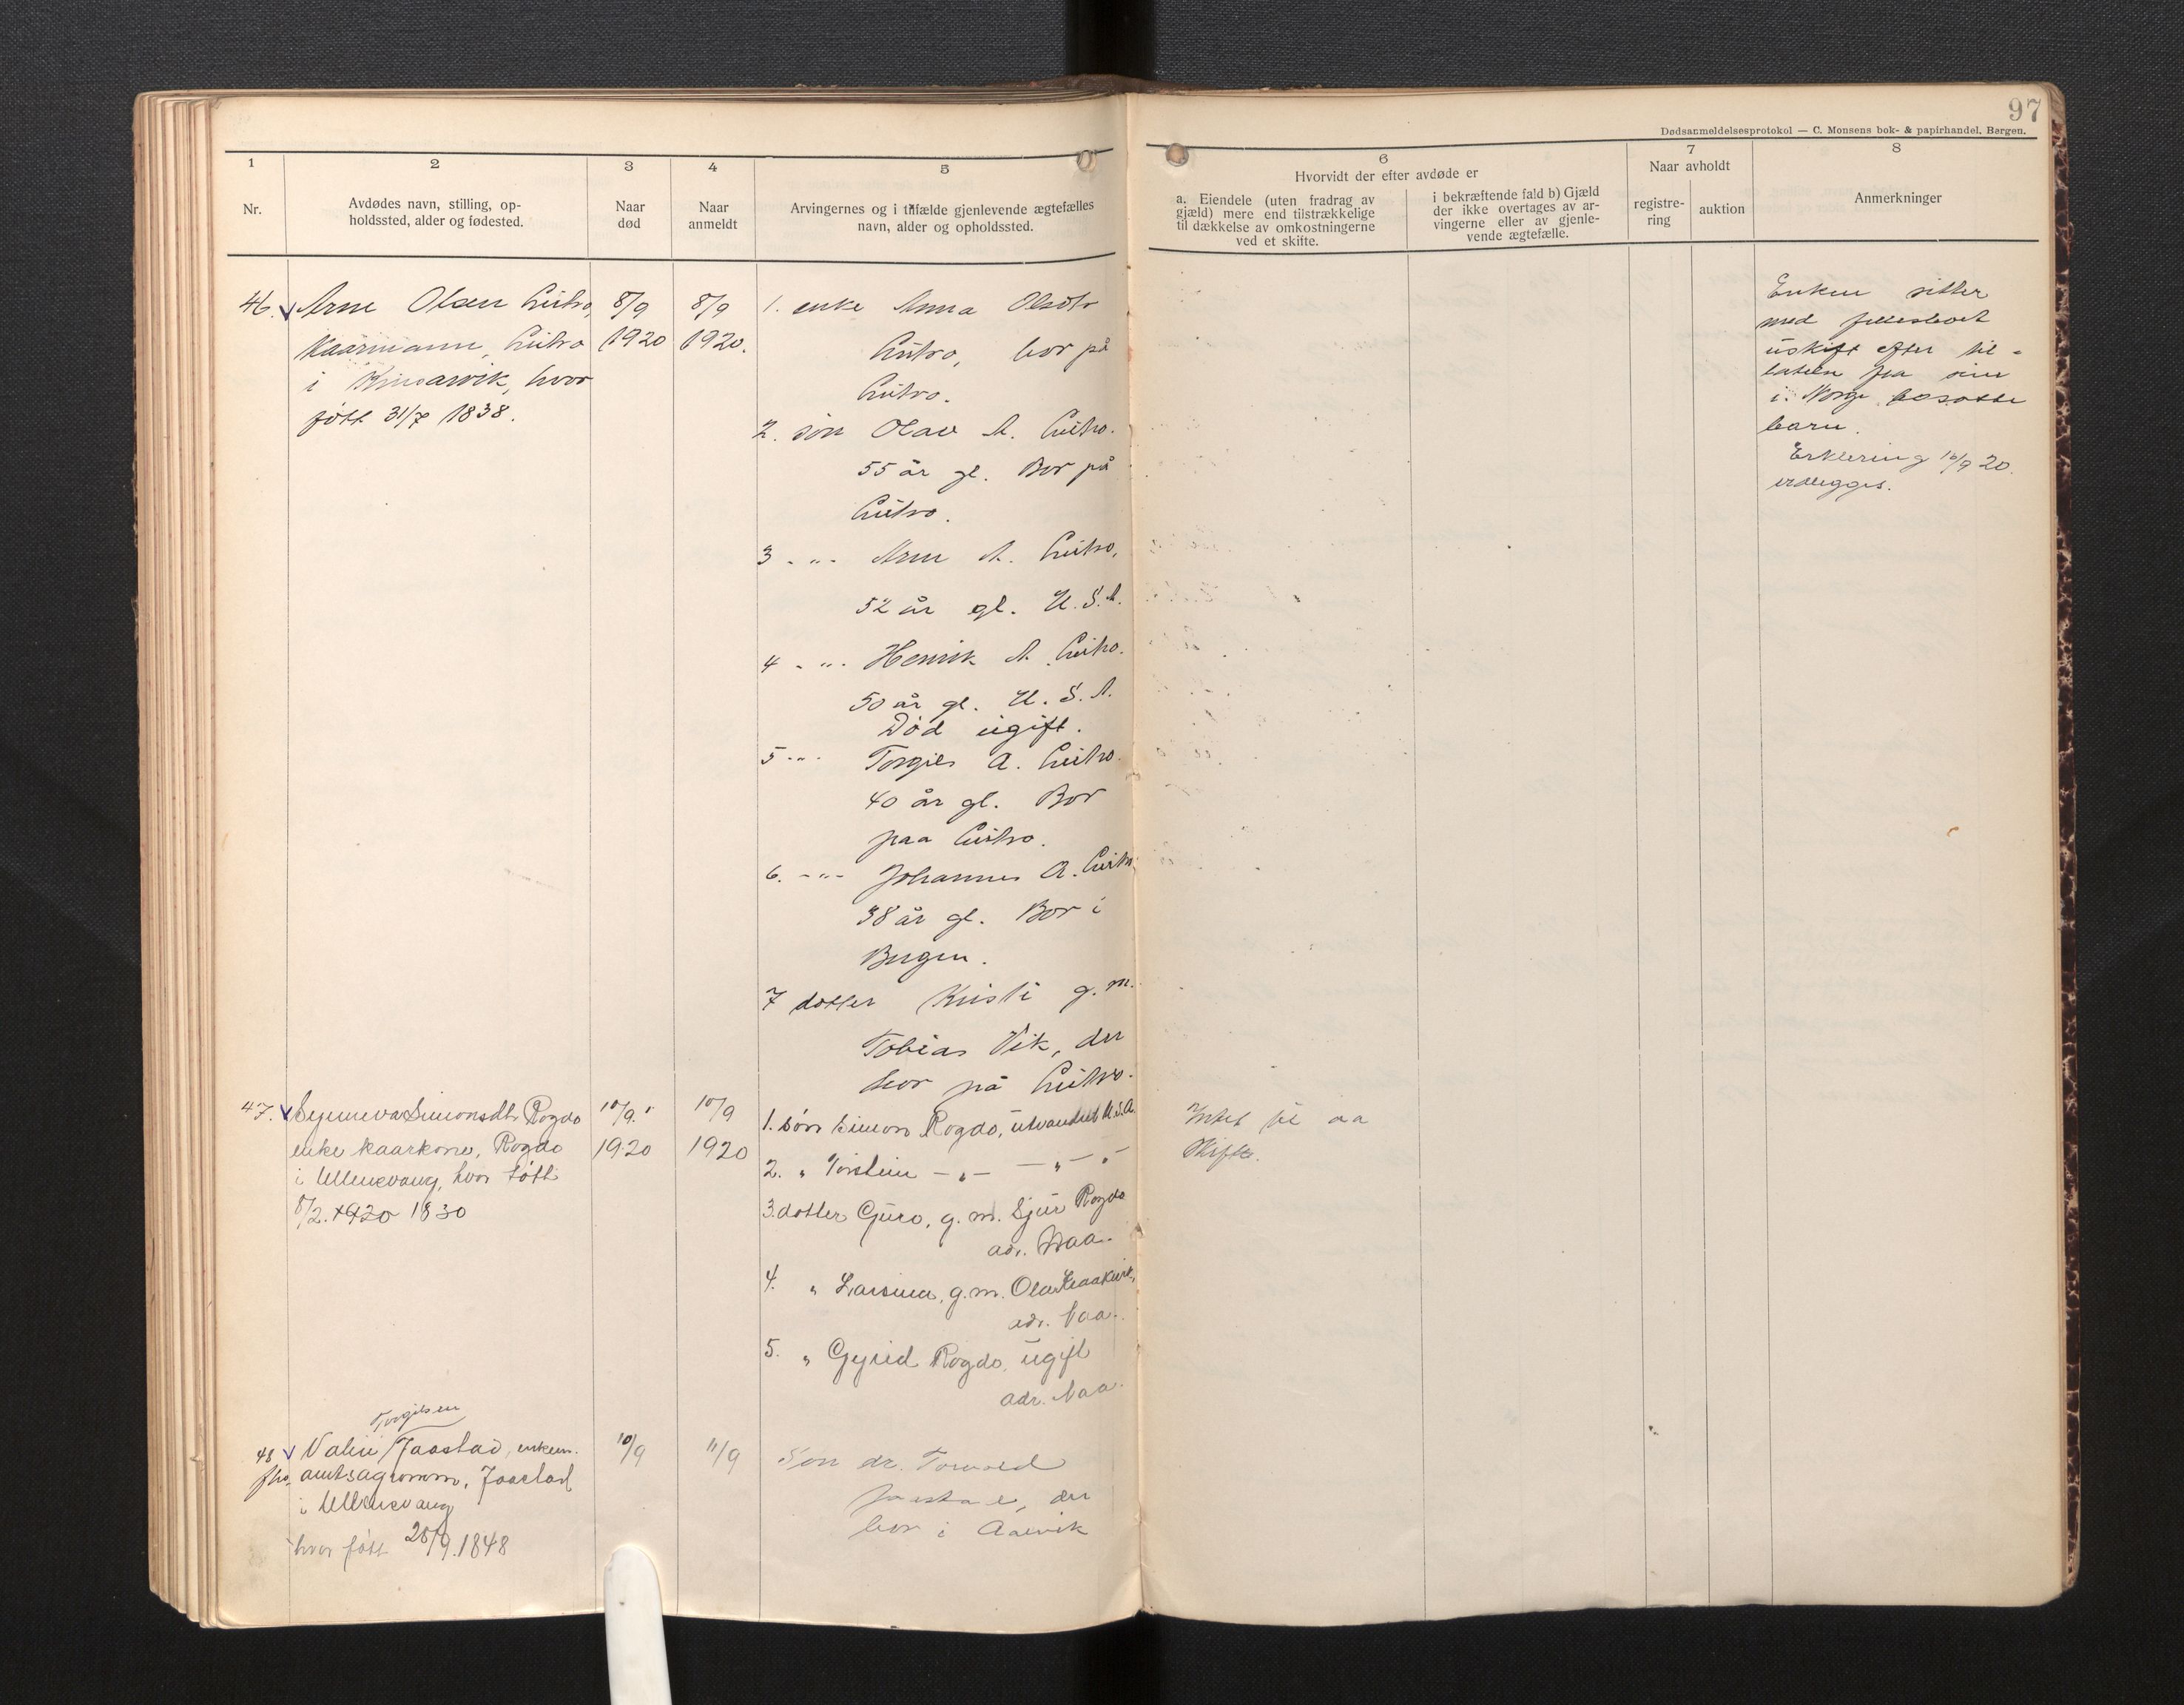 97
Dødsanmeldelsesprotokol — C. Monsens bok- & papirhandel. Bergen.
1
2
3
4
5
6
7
8
Nr.
Avdødes navn, stilling, op-
holdssted, alder og fødested.
Naar
død
Naar
anmeldt
Arvingernes og i tilfælde gjenlevende ægtefælles
navn, alder og opholdssted.
Hvorvidt der efter avdøde er
a. Eiendele (uten fradrag av
gjæld) mere end tilstrækkelige
til dækkelse av omkostningerne
ved et skifte.
i bekræftende fald b) Gjæld
der ikke overtages av ar-
vingerne eller av gjenle-
vende ægtefælle.
Naar avholdt
registre-
ring
auktion
Anmerkninger
46. Arne Olsen Lutro,
Kaarmann, Lutro
i Kinsarvik, hvor
født 31/7 1838.
8/9
1920
8/9
1920.
1. enke Anna Olsdtr
Lutro, bor på
Lutro.
2. søn Olav A. Lutro.
55 år gl. Bor på
Lutro.
3 - " - Arne A. Lutro,
52 år gl. U.S.A.
4 - " - Henrik A. Lutro.
50 år gl. U.S.A.
Død ugift.
5 - " - Torgils A. Lutro.
40 år gl. Bor
paa Lutro.
6. - " - Johannes A. Lutro,
38 år gl. Bor i
Bergen.
7 dotter Kristi g.m.
Tobias Vik, der
bor på Lutro.
Enken sitter
med fellesboet
uskift efter til-
latelse fra sine
i Norge bosatte
barn.
Erklering 16/9 20
vedlegges.
47. Synneva Simonsdtr Rogdo
enke kaarkone, Rogdo
i Ullensvang, hvor født
8/2. 1920 1830
10/9.
1920
10/9
1920
1. søn Simon Rogdo, utvandret U.S.A.
2. " Torstein - " - - " -
3. dotter Guro, g.m. Sjur Rogdo
adr. Naa.
4. " Larsina, g.m. Ola
adr. Naa.
5. " Gyrid Rogdo, ugift
adr. Naa.
Intet til aa
skifte.
Torgilsen
48 Jaastad, enkem.
amtsagronom, Jaastad
i Ullensvang
hvor født 28/9.1848
10/9
11/9
Søn dr. Torvald
Jaastad, der
bor i Aalvik